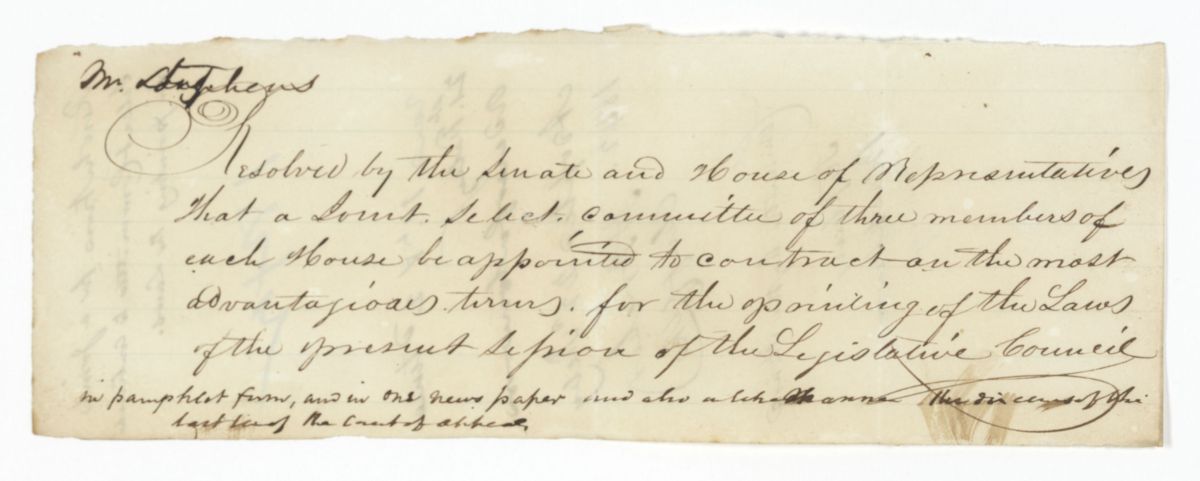 Mr. Stephens
Resolved by the Senate and House of Representatives
that a Joint. Select. committee of three members of
each House be appointed to contract on the most
advantagioaes terms. for the printing of the Laws
of the present Session of the Legislative Council
in pamphlet form, and in one news paper and also the of the
last of the Court of